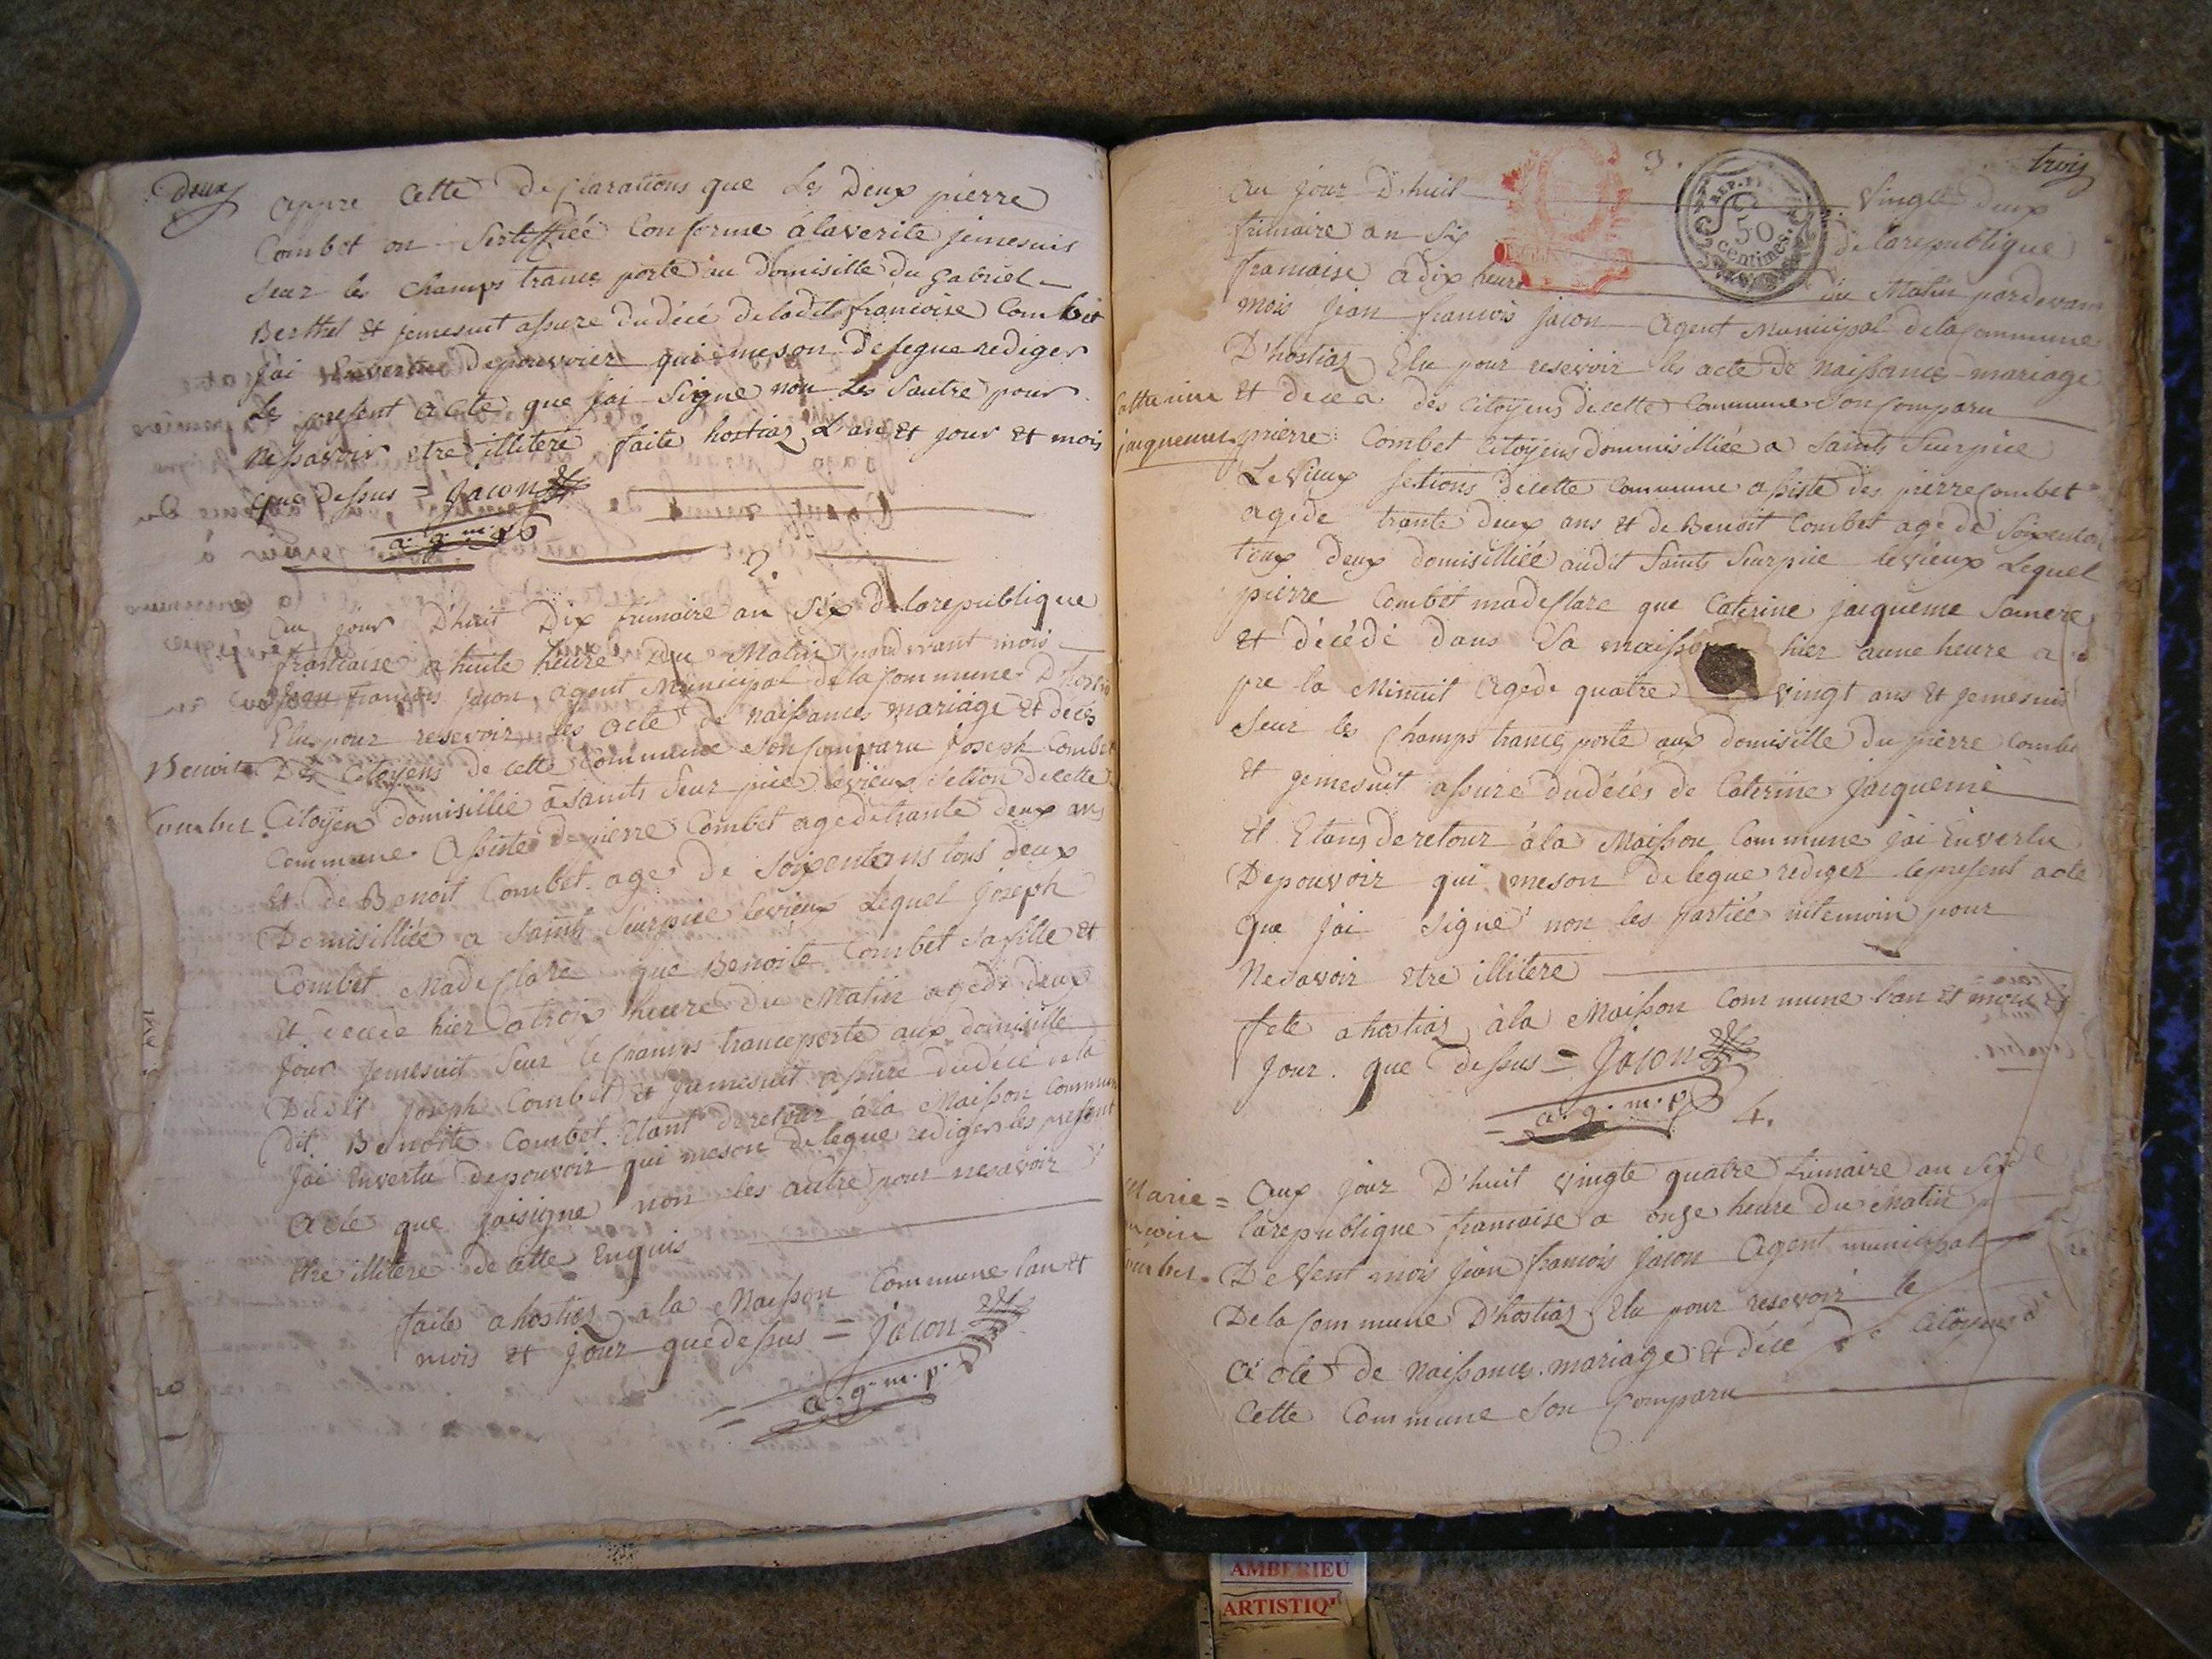 deux
appre cette declarations que les deux pierre
Combet on sertiffiée conforme a la verite jemesuis
seur les champs trance porte au domisille du gabriel
Berthet et jemesuit assure dudécé deladit francoise Combet
jai Envertu depouvoier qui meson delegue rediger
Le present acte que jai signe non les sautre pour
nessavoir etre illitere faite hostiaz L'an et jour et mois
que dessus = Jacon
a. g. m. p
2.
Au jour D'huit Dix frimaire an six delarepublique
francaise a huite heure du Matin pardevant mois
Jean francois jacon agent Municipal dela commune D'hostia
Elu pour resevoir les acte de naissances mariage et decés
Benoite Des Citoyens de cette commune son comparu joseph Combet
Combet Citoyen domisillié a saints seurpice levieux setion decette
Commune Assiste de pierre Combet agedetrante deux ans
et de Benoit Combet age de soixentens tous deux
Domisilliée a saints seurpice levieux Lequel joseph
Combet Madeclare que Benoite Combet safille et
et decede hier a trois heure du Matin agede deux
jour jemesuit seur le champs tranceporte aux domisille
Dudit joseph Combet et jemesuit assure dudécé de la
dit Benoite Combet. Etant deretour a la Maisson Commun
jai Envertu depouvoir qui meson delegue rediger les present
acte que jaisigne non les autre pour nesavoir
etre illitere de cette Enquis
faite a hostiaz a la Maisson Commune lan et
mois et jour quedessus = jacon
a. g. m. p.
3. trois
Au jour D'huit vingte deux
frimaire an six de larepublique
francaise a dix heure du Matin pardevant
mois jean francois jacon Agent Municipal dela commune
D'hostiaz Elu pour resevoir les acte de naissance mariage
Catterine et decea des citoyens decette commune son comparu
jacquemet pierre Combet citoyens dommisilliée a saints seurpice
Levieux sections decette commune assiste des pierre combet
agede trante deux ans et de Benoit Combet age de soixenten
toux deux domisilliée audit saints seurpice levieux Lequel
pierre Combet madeclare que Caterine jacqueme samere
et décédé dans sa maisson hier aune heure a
pre la Minuit agede quatre vingt ans et jemesuis
seur les champs trance porte aux domisille du pierre combe
et jemesuit assure dudécés de Caterine jacquemé
et Etans deretour a la Maisson Commune jai Envertu
Depouvoir qui meson delegue rediger le present acte
que jai signe non les partiée nitemoin pour
Nesavoir etre illitere
fete a hostiaz a la Maisson Commune lan et mois et
jour que dessus = jacon
a. g. m. p
4.
Marie = Aux jour D'huit vingte quatre frimaire an six de
larepublique francaise a onze heure du Matin
Combet. Devent mois jean francois jacon agent municipal
Dela commune D'hostiaz Elu pour resevoir le
acte de naissances mariage et décé de citoyens d
cette commune son comparu
REP. FRA.
50
centimes.
AMBERIEU
ARTISTIQ